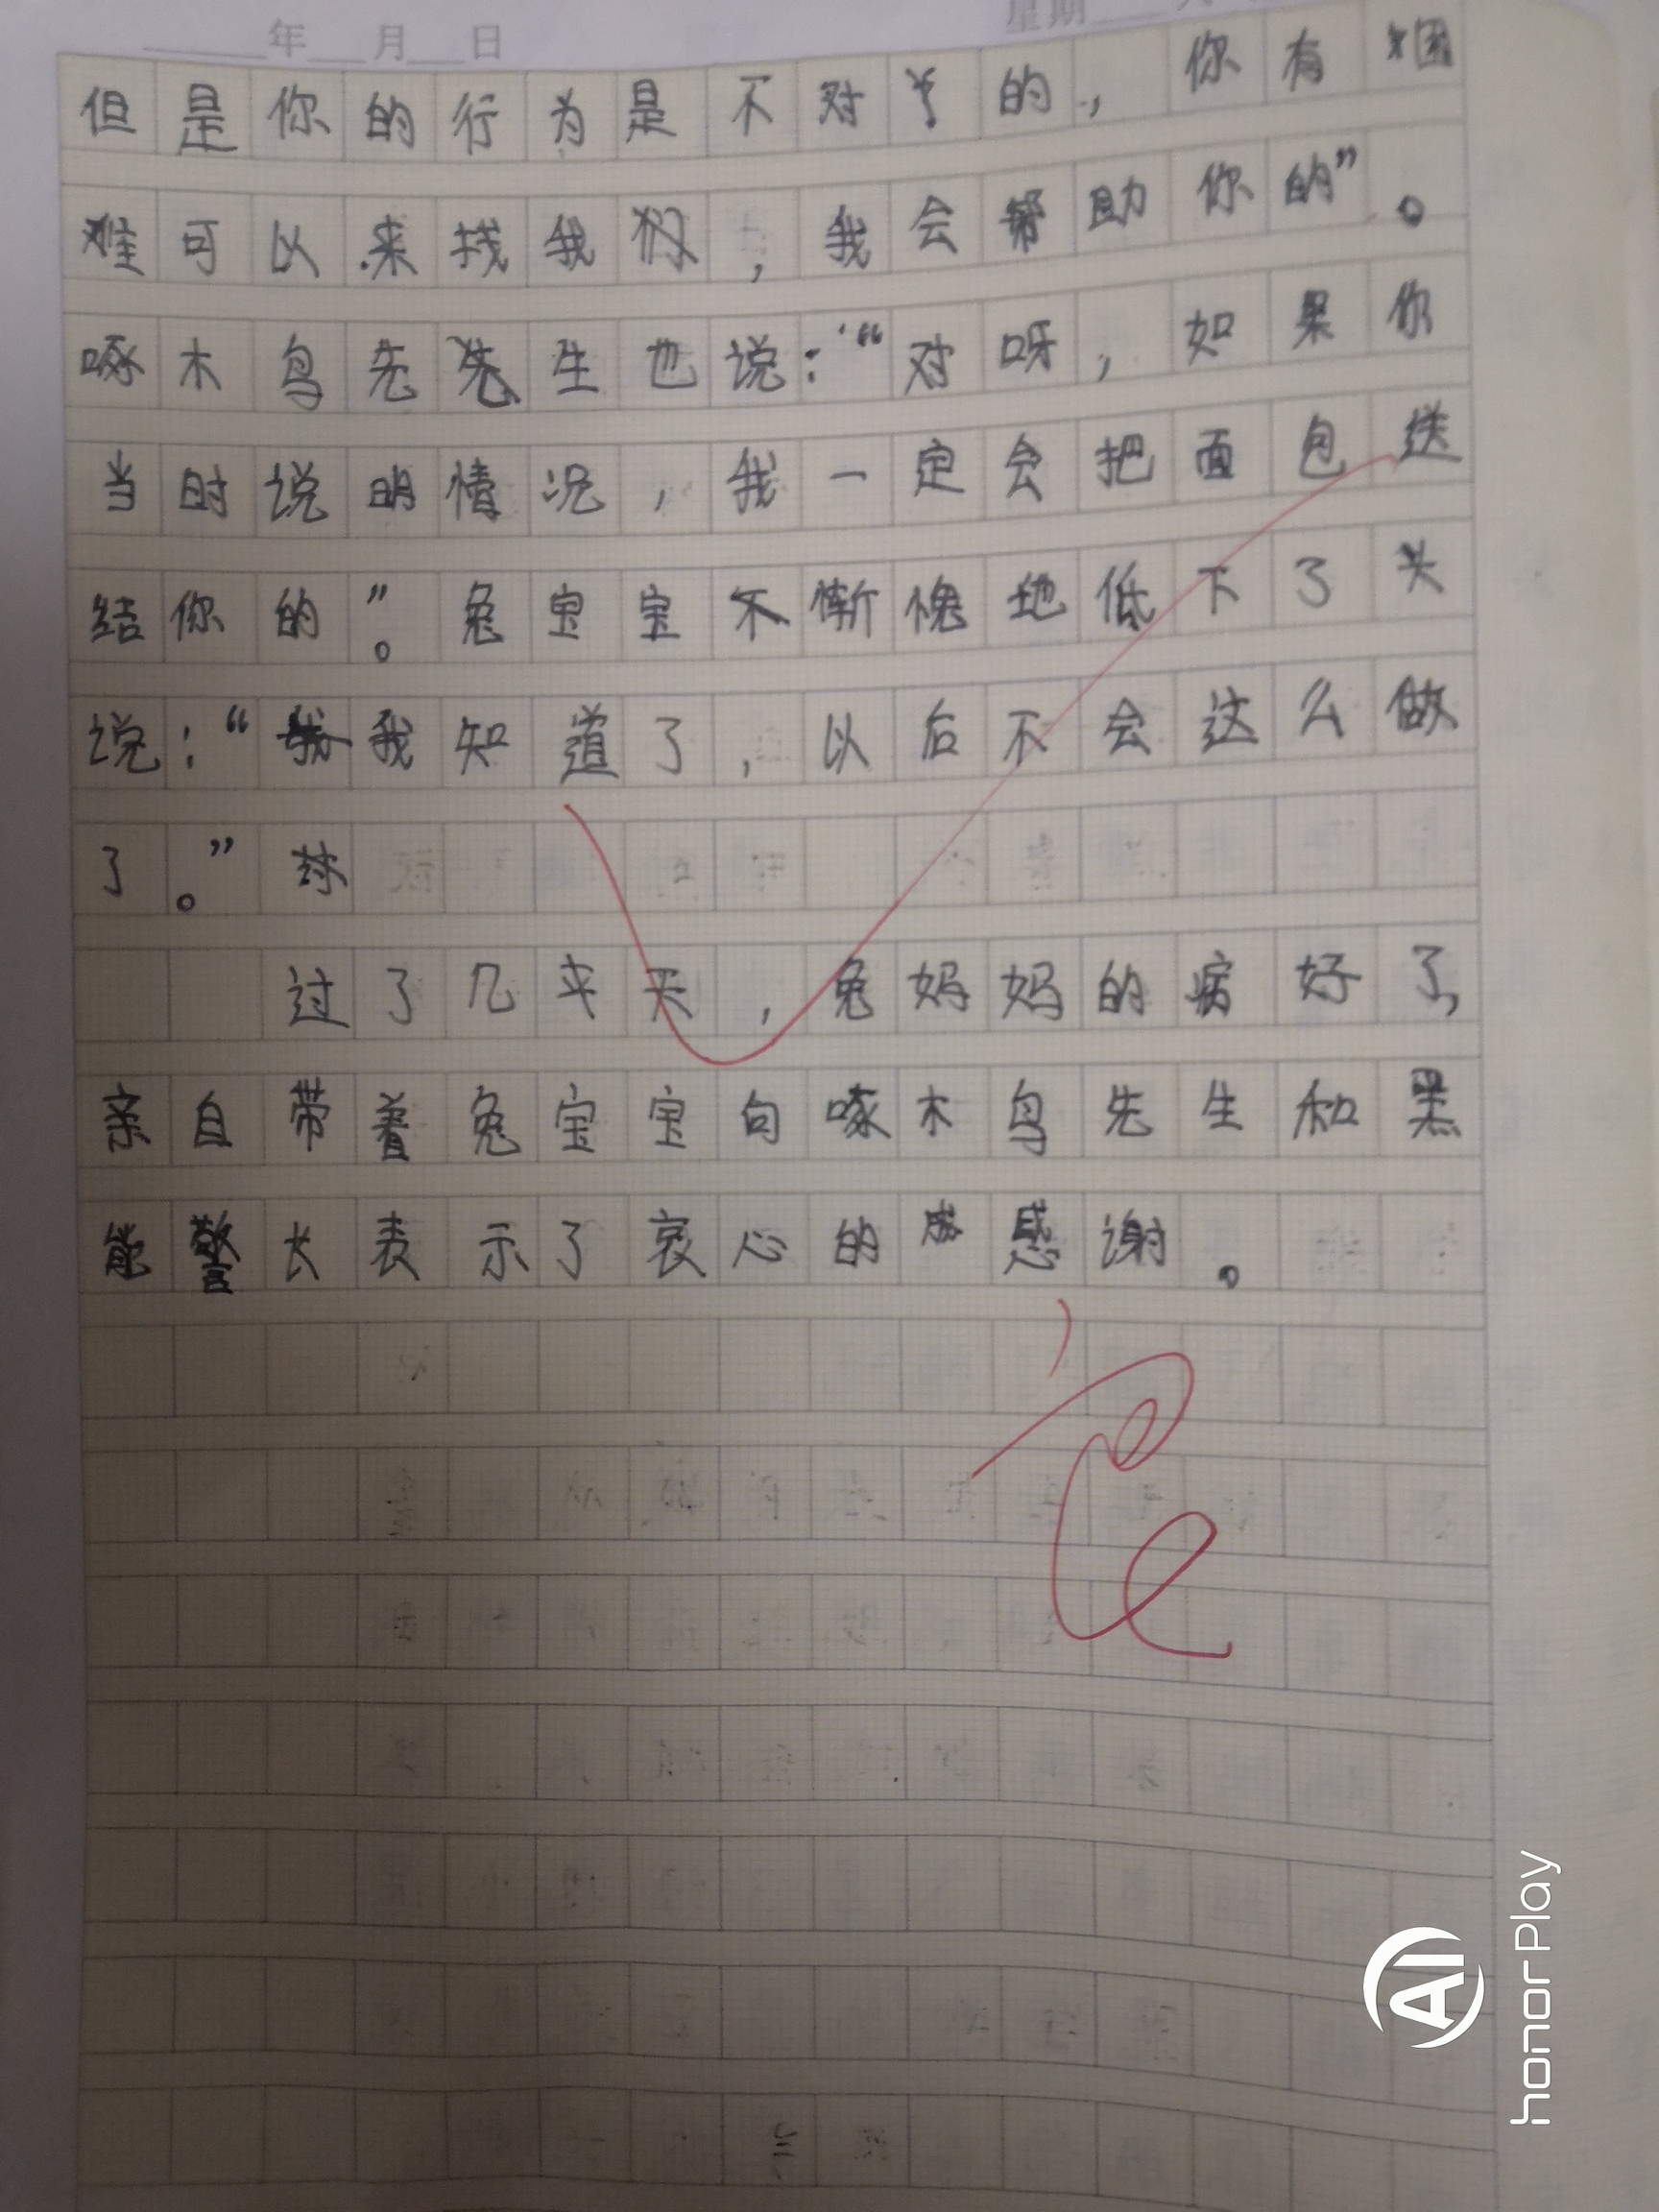 年 月 日 星期
但是你的行为是不对的，你有困
难可以来找我们，我会帮助你的”。
啄木鸟先生也说：“对呀，如果你
当时说明情况，我一定会把面包送
给你的。”兔宝宝不惭愧地低下了头
说：“我知道了，以后不会这么做
了。”
过了几天，兔妈妈的病好了，
亲自带着兔宝宝向啄木鸟先生和黑
熊警长表示了衷心的感谢。
AI
honor Play